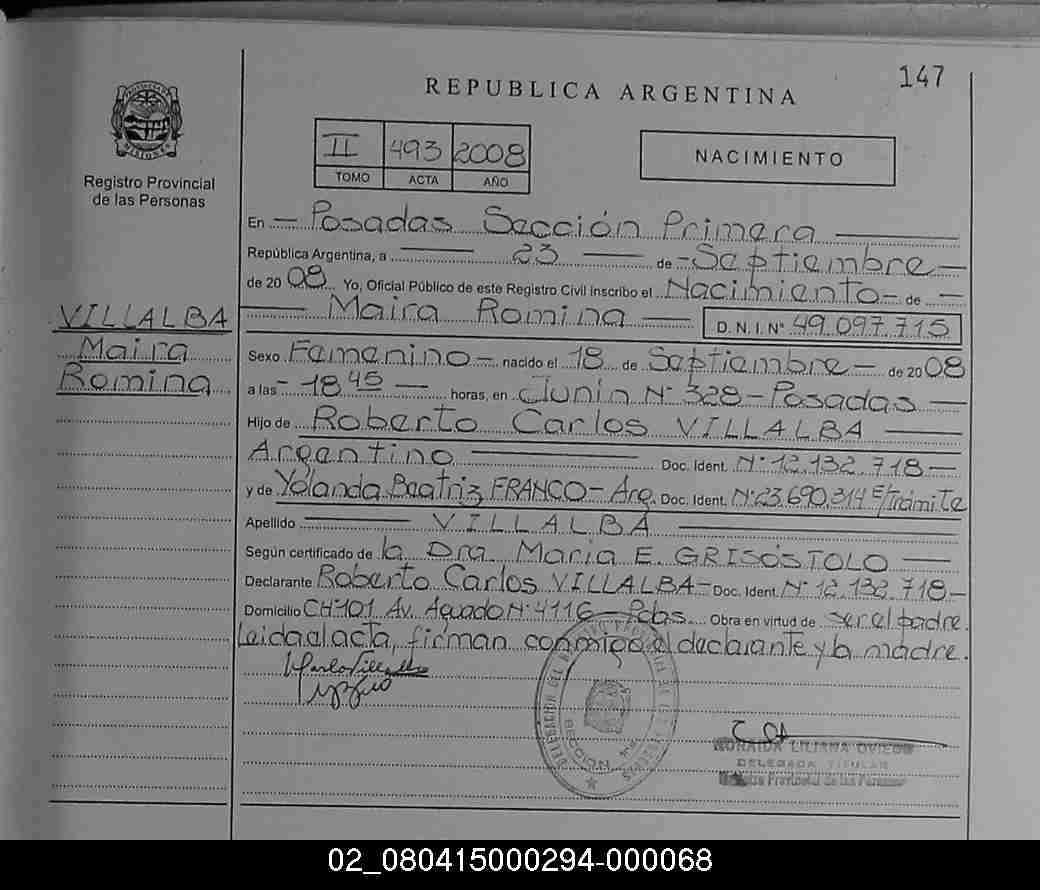 147
REPUBLICA ARGENTINA
PROVINCIA DE
MISIONES
Registro Provincial
de las Personas
II 493 2008
TOMO ACTA AÑO
NACIMIENTO
En — Posadas Sección Primera —
República Argentina, a — 23 — de - Septiembre —
de 2008. Yo, Oficial Público de este Registro Civil inscribo el Nacimiento - de —
— Maira Romina — D.N.I.Nº 49.097.715
VILLALBA
Maira
Romina
Sexo Femenino - nacido el 18 de Septiembre - de 2008
a las - 18 45 — horas, en Junin Nº 328 - Posadas —
Hijo de Roberto Carlos VILLALBA —
Argentino — Doc. Ident. Nº 12.132.718 —
y de Yolanda Beatriz FRANCO - Arg. Doc. Ident. Nº 23.690.314 E/trámite
Apellido — VILLALBA —
Según certificado de la Dra. María E. GRISÓSTOLO —
Declarante Roberto Carlos VILLALBA - Doc. Ident. Nº 12.132.718 -
Domicilio CHº101 Av. Aguado Nº 4116 - Pdas. Obra en virtud de ser el padre.
Leida al acta, firman conmigo el declarante y la madre.
DELEGACION DEL
SECCION
LILIANA OVIEDO
DELEGADA TITULAR
Provincial de las Personas
02_080415000294-000068